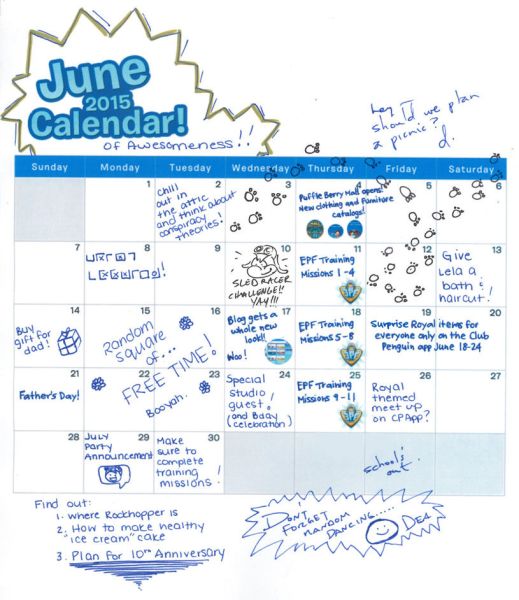 June
2015
Calendar!
of Awesomeness!!
Hey
should we plan
a picnic?
d.
Sunday Monday Tuesday Wednesday Thursday Friday Saturday
1 2 3 4 5 6
Chill
out in
the attic
and think about
conspiracy
theories!
Puffle Berry Mall opens!
New clothing and Furniture
catalogs!
7 8 9 10 11 12 13
SLED RACER
CHALLENGE!!
YAY!!!
EPF Training
Missions 1-4
Give
Lela a
bath &
haircut!
14 15 16 17 18 19 20
Buy
gift for
dad!
Random
Square
of...
FREE TIME!
Booyah.
Blog gets a
whole new
look!!
Woo!
EPF Training
Missions 5-8
Surprise Royal items for
everyone only on the Club
Penguin app June 18-24
21 22 23 24 25 26 27
Father's Day!
Special
Studio
guest.
(and Bday
celebration)
EPF Training
Missions 9-11
Royal
themed
meet up
on CPApp?
28 29 30
July
Party
Announcement
Make
sure to
complete
training
missions!
school's
out
Find out:
1. Where Rockhopper is
2. How to make healthy
"ice cream" cake
3. Plan for 10th Anniversary
DON'T
FORGET
RANDOM
DANCING.....